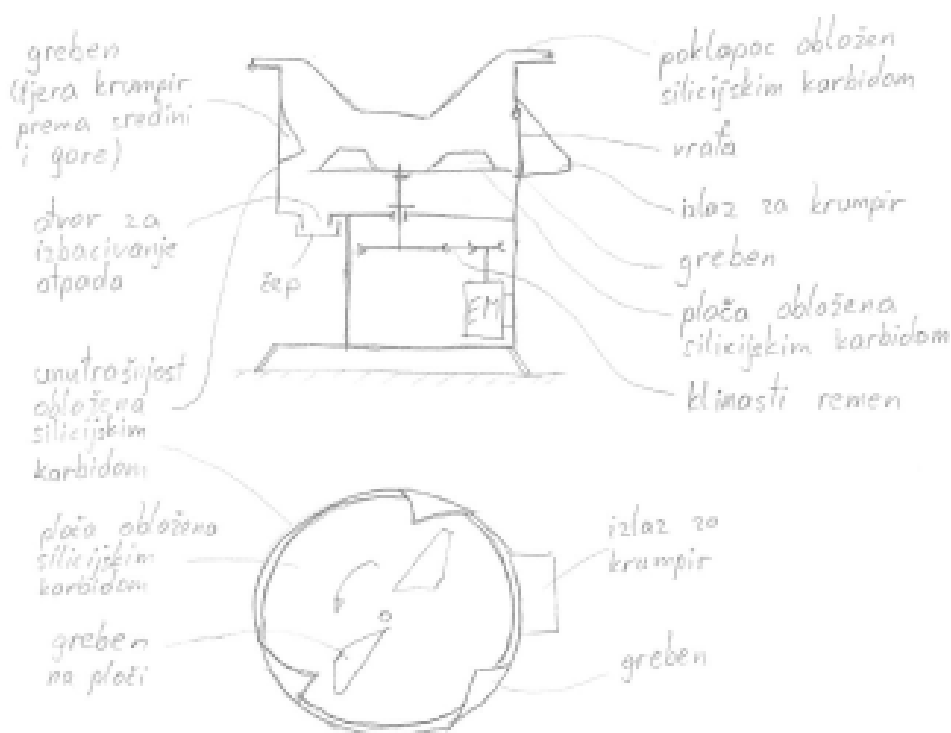 greben
(tjera krumpir
prema sredini
i gore)
otvor za
izbacivanje
otpada
čep
unutrašnjost
obložena
silicijskim
karbidom
poklapac obložen
silicijskim karbidom
vrata
izlaz za krumpir
greben
ploča obložena
silicijskim karbidom
klinasti remen
EM
ploča obložena
silicijskim
karbidom
greben
na ploči
izlaz za
krumpir
greben